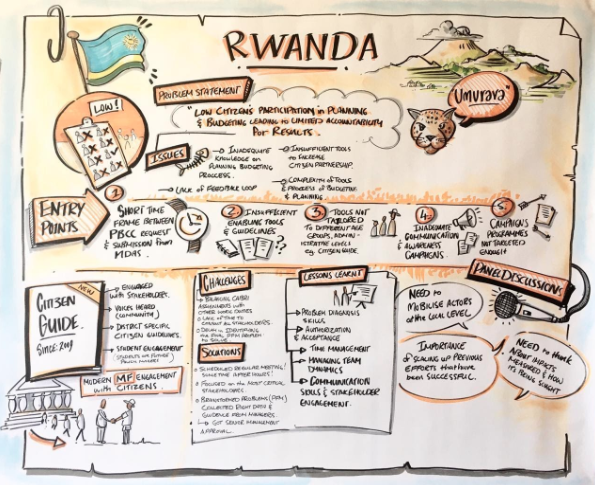 RWANDA
LOW!
PROBLEM STATEMENT
"LOW CITIZEN'S PARTICIPATION in PLANNING
& BUDGETING LEADING to LIMITED ACCOUNTABILITY
for RESULTS.
"Umurava"
ISSUES
→ INADEQUATE
KNOWLEDGE on
PLANNING BUDGETING
PROCESS.
→ LACK of FEEDBACK LOOP
→ INSUFFICIENT TOOLS
to INCREASE
CITIZEN PARTNERSHIP.
→ COMPLEXITY of TOOLS
& PROCESS of BUDGETING
& PLANNING
ENTRY
POINTS
1
SHORT TIME
FRAME BETWEEN
PBCC REQUEST
& SUBMISSION from
MDAs.
2 INSUFFICIENT
ENABLING TOOLS
& GUIDELINES
3 TOOLS NOT
TAILORED
to DIFFERENT AGE
GROUPS, ADMIN-
ISTRATIVE LEVELS
eg. CITIZEN GUIDE.
4
INADEQUATE
COMMUNICATION
& AWARENESS
CAMPAIGNS.
5
CAMPAIGNS
PROGRAMMES
NOT TARGETED
ENOUGH
NEW
CITIZEN
GUIDE.
SINCE 2009
→ ENGAGED
with STAKEHOLDERS.
→ VOICES HEARD
(COMMUNITY)
→ DISTRICT SPECIFIC
CITIZEN GUIDELINES.
→ STUDENT ENGAGEMENT
STUDENTS are FUTURE
POLICY MAKERS
MODERN MF ENGAGEMENT
with CITIZENS.
CHALLENGES
→ BALANCING CABRI
ASSIGNMENTS with
OTHER WORK DUTIES
→ LACK of TIME to
CONSULT ALL STAKEHOLDERS
SOLUTIONS
→ SCHEDULED REGULAR MEETING!
SOMETIME AFTER HOURS!
→ FOCUSED on the MOST CRITICAL
STAKEHOLDERS
→ BRAINSTORMED PROBLEMS
COLLECTED RIGHT DATA &
GUIDANCE FROM MANAGERS.
→ GOT SENIOR MANAGEMENT
APPROVAL.
LESSONS LEARNT
→ PROBLEM DIAGNOSIS
SKILLS
→ AUTHORIZATION
& ACCEPTANCE
→ TIME MANAGEMENT
→ MANAGING TEAM
DYNAMICS
→ COMMUNICATION
SKILLS & STAKEHOLDER
ENGAGEMENT.
PANEL DISCUSSIONS
NEED to
MOBILISE ACTORS
at the LOCAL LEVEL
IMPORTANCE
of SCALING UP PREVIOUS
EFFORTS that have
been SUCCESSFUL.
NEED to think
ABOUT IMPACTS
MEASURED & HOW
IT'S BEING SOUGHT